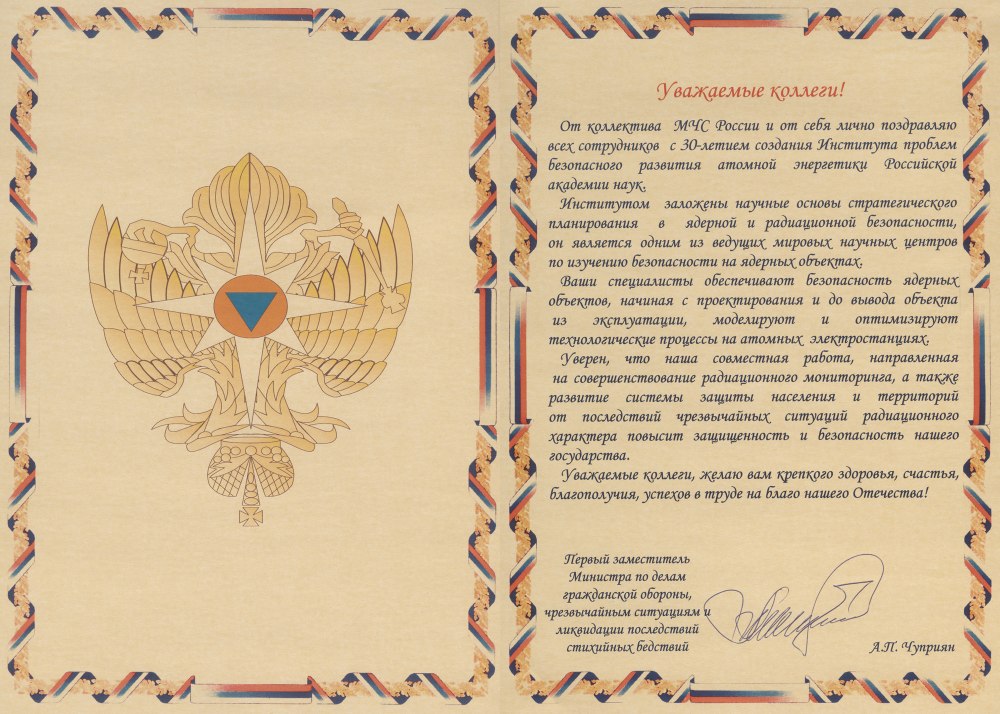 Уважаемые коллеги!
От коллектива МЧС России и от себя лично поздравляю
всех сотрудников с 30-летием создания Института проблем
безопасного развития атомной энергетики Российской
академии наук.
Институтом заложены научные основы стратегического
планирования в ядерной и радиационной безопасности,
он является одним из ведущих мировых научных центров
по изучению безопасности на ядерных объектах.
Ваши специалисты обеспечивают безопасность ядерных
объектов, начиная с проектирования и до вывода объекта
из эксплуатации, моделируют и оптимизируют
технологические процессы на атомных электростанциях.
Уверен, что наша совместная работа, направленная
на совершенствование радиационного мониторинга, а также
развитие системы защиты населения и территорий
от последствий чрезвычайных ситуаций радиационного
характера повысит защищенность и безопасность нашего
государства.
Уважаемые коллеги, желаю вам крепкого здоровья, счастья,
благополучия, успехов в труде на благо нашего Отечества!
Первый заместитель
Министра по делам
гражданской обороны,
чрезвычайным ситуациям и
ликвидации последствий
стихийных бедствий
А.П. Чуприян